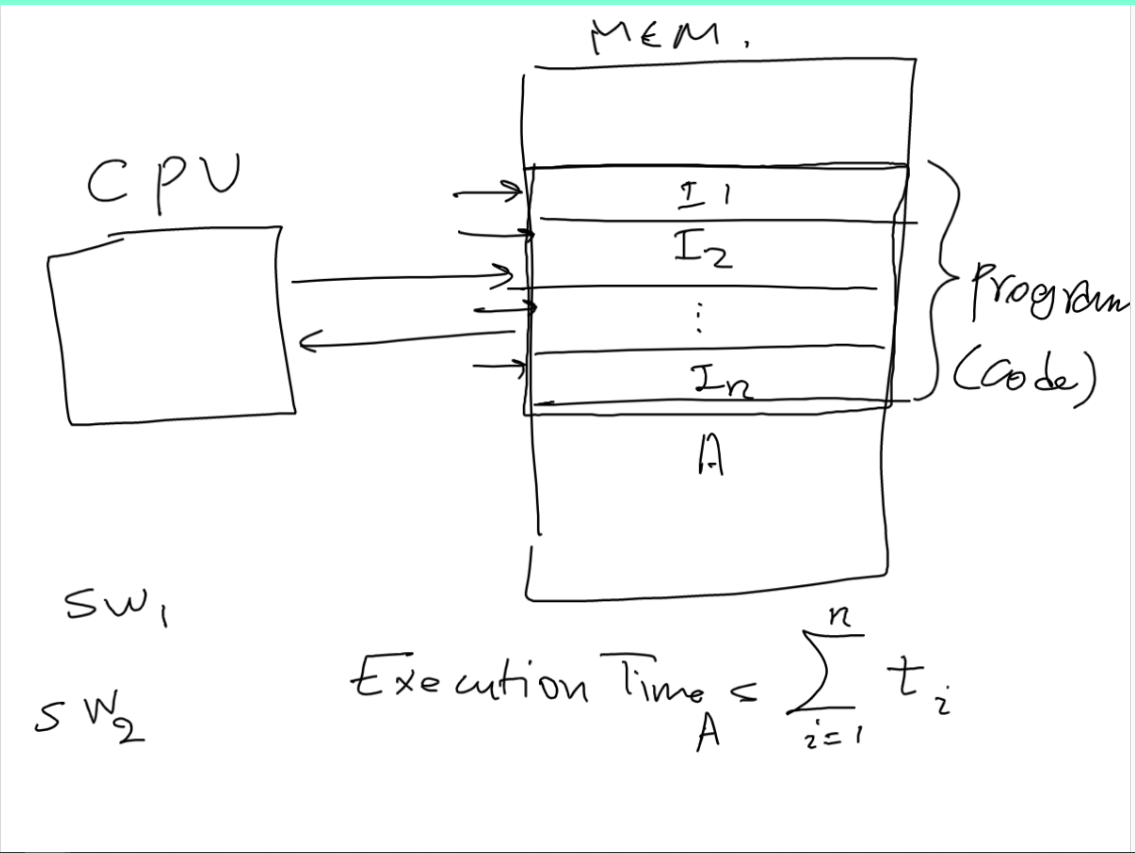 MEM.
CPU
I1
I2
⋮
In
Program
(Code)
A
SW1
SW2
Execution Time A = n ∑ i=1 ti